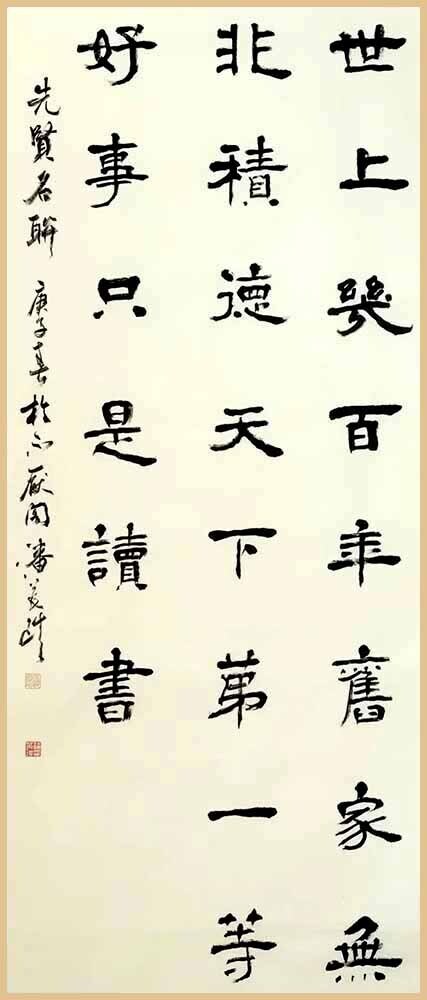 世上幾百年舊家無
非積德天下第一等
好事只是讀書
先賢名聯 庚子春於不厭閣潘